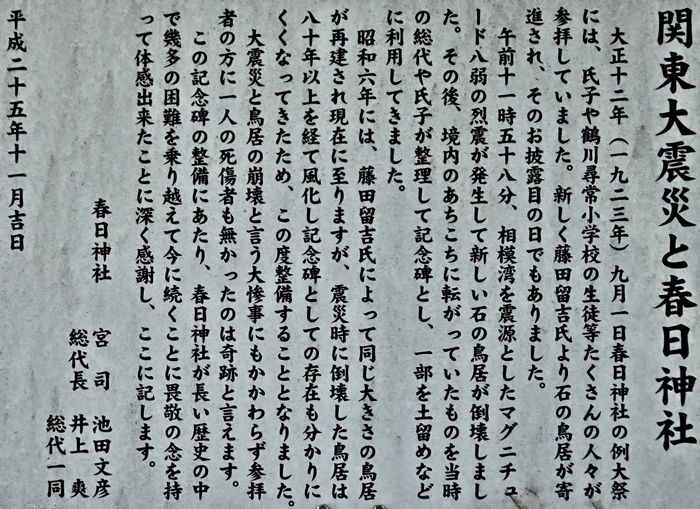 関東大震災と春日神社
大正十二年（一九二三年）九月一日春日神社の例大祭
には、氏子や鶴川尋常小学校の生徒等たくさんの人々が
参拝していました。新しく藤田留吉氏より石の鳥居が寄
進され、そのお披露目の日でもありました。
午前十一時五十八分、相模湾を震源としたマグニチュ
ード八弱の烈震が発生して新しい石の鳥居が倒壊しまし
た。その後、境内のあちこちに転がっていたものを当時
の総代や氏子が整理して記念碑とし、一部を土留めなど
に利用してきました。
昭和六年には、藤田留吉氏によって同じ大きさの鳥居
が再建され現在に至りますが、震災時に倒壊した鳥居は
八十年以上を経て風化し記念碑としての存在も分かりに
くくなってきたため、この度整備することとなりました。
大震災と鳥居の崩壊と言う大惨事にもかかわらず参拝
者の方に一人の死傷者も無かったのは奇跡と言えます。
この記念碑の整備にあたり、春日神社が長い歴史の中
で幾多の困難を乗り越えて今に続くことに畏敬の念を持
って体感出来たことに深く感謝し、ここに記します。
春日神社　宮司　池田文彦
総代長　井上　爽
総代一同
平成二十五年十一月吉日